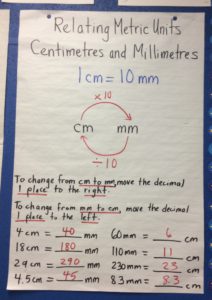 Relating Metric Units
Centimetres and Millimetres
1 cm = 10 mm
×10
cm mm
÷10
To change from cm to mm, move the decimal
1 place to the right.
To change from mm to cm, move the decimal
1 place to the left.
4 cm = 40 mm 60 mm = 6 cm
18 cm = 180 mm 110 mm = 11 cm
29 cm = 290 mm 230 mm = 23 cm
4.5 cm = 45 mm 83 mm = 8.3 cm